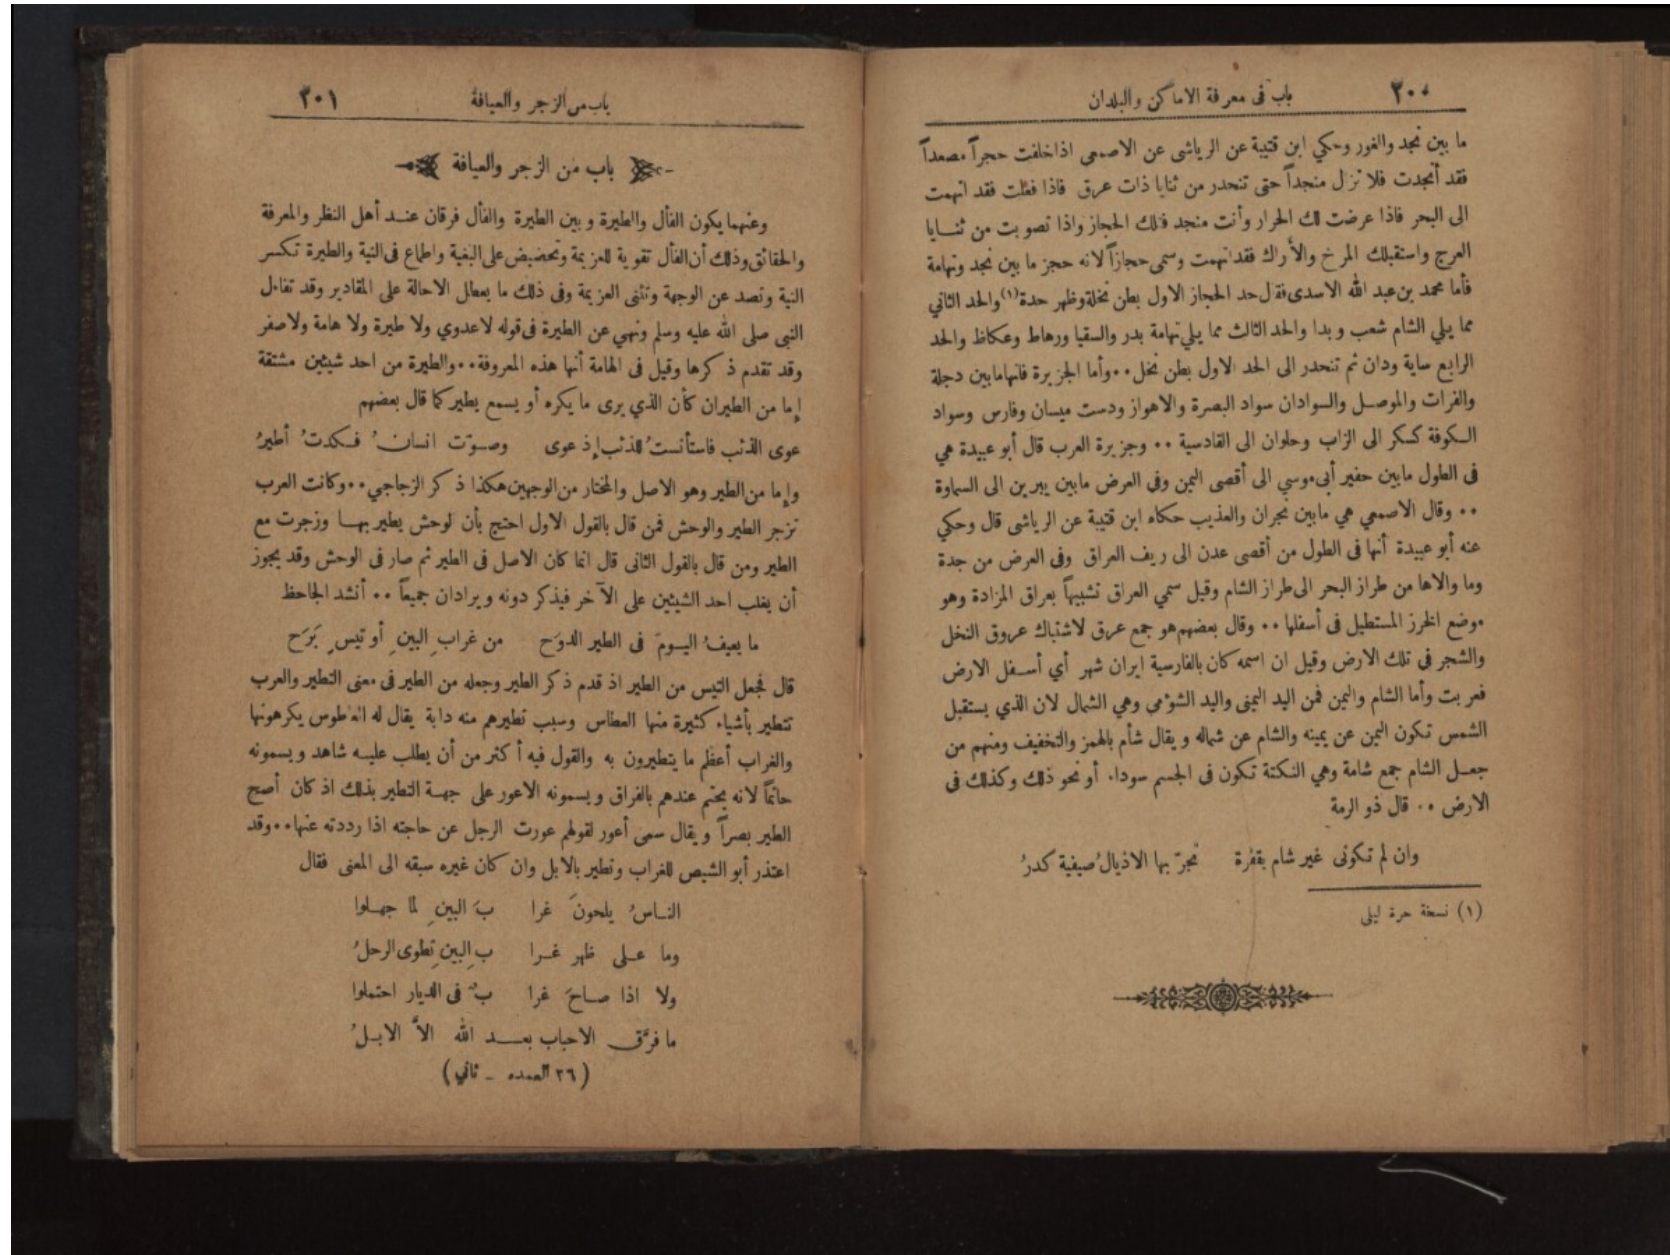 ٢٠٠ باب فى معرفة الاماكن والبلدان
ما بين نجد والغور وحكي ابن قتيبة عن الرياشى عن الاصمعى اذا خلفت حجراً مصعداً
فقد أنجدت فلا تزال منجداً حتى تنحدر من ثنايا ذات عرق فاذا فعلت فقد اتهمت
الى البحر فاذا عرضت لك الحرار وأنت منجد فتلك الحجاز واذا تصوبت من ثنــايا
العرج واستقبلك المرخ والأراك فقد اتهمت وسمى حجازاً لانه حجز ما بين نجد وتهامة
فأما محمد بن عبد الله الاسدى فقال حد الحجاز الاول بطن نخلة وظهر حدة(١) والحد الثاني
مما يلي الشام شعب وبدا والحد الثالث مما يلي تهامة بدر والسقيا ورهاط وعكاظ والحد
الرابع ساية ودان ثم تنحدر الى الحد الاول بطن نخل ٠٠ وأما الجزيرة فانها مابين دجلة
والفرات والموصــل والسوادان سواد البصرة والاهواز ودست ميسان وفارس وسواد
الـكوفة كسكر الى الزاب وحلوان الى القادسية ٠٠ وجزيرة العرب قال أبو عبيدة هي
فى الطول مابين حفير أبى موسي الى أقصى اليمن وفى العرض مابين يبرين الى السماوة
٠٠ وقال الاصمعي هي مابين نجران والعذيب حكاه ابن قتيبة عن الرياشى قال وحكي
عنه أبو عبيدة أنها فى الطول من أقصى عدن الى ريف العراق وفى العرض من جدة
وما والاها من طراز البحر الى طراز الشام وقيل سمي العراق تشبيهاً بعراق المزادة وهو
موضع الخرز المستطيل فى أسفلها ٠٠ وقال بعضهم هو جمع عرق لاشتباك عروق النخل
والشجر فى تلك الارض وقيل ان اسمه كان بالفارسية ايران شهر أي أســفل الارض
فعربت وأما الشام واليمن فمن اليد اليمنى واليد الشؤمى وهي الشمال لان الذي يستقبل
الشمس تكون اليمن عن يمينه والشام عن شماله ويقال شأم بالهمز والتخفيف ومنهم من
جعــل الشام جمع شامة وهي النكتة تكون فى الجسم سوداء أو نحو ذلك وكذلك فى
الارض ٠٠ قال ذو الرمة
وان لم تكونى غير شام بقفرة تجرّ بها الاذيالُ صيفية كدرُ
(١) نسخة حرة ليلى
باب من الزجر والعيافة ٢٠١
باب من الزجر والعيافة
وعنهما يكون الفأل والطيرة وبين الطيرة والفأل فرقان عنــد أهل النظر والمعرفة
والحقائق وذلك أن الفأل تقوية للعزيمة وتحضيض على البغية واطماع فى النية والطيرة تكسر
النية وتصد عن الوجهة وتثنى العزيمة وفى ذلك ما يعطل الاحالة على المقادير وقد تفاءل
النبى صلى الله عليه وسلم ونهي عن الطيرة فى قوله لاعدوي ولا طيرة ولا هامة ولا صفر
وقد تقدم ذكرها وقيل فى الهامة أنها هذه المعروفة ٠٠ والطيرة من احد شيئين مشتقة
إما من الطيران كأن الذي يرى ما يكره أو يسمع يطير كما قال بعضهم
عوى الذئب فاستأنستُ للذئب إذ عوى وصــوّت انسانُ فــكدتُ أطيرُ
وإما من الطير وهو الاصل والمختار من الوجهين هكذا ذكر الزجاجي ٠٠ وكانت العرب
تزجر الطير والوحش فمن قال بالقول الاول احتج بأن الوحش يطير بهــا وزجرت مع
الطير ومن قال بالقول الثانى قال انما كان الاصل فى الطير ثم صار فى الوحش وقد يجوز
أن يغلب احد الشيئين على الآخر فيذكر دونه ويرادان جميعاً ٠٠ أنشد الجاحظ
ما يعيفُ اليــومَ فى الطير الدوَح من غراب البينِ أو تيسٍ بَرَح
قال فجعل التيس من الطير اذ قدم ذكر الطير وجعله من الطير فى معنى التطير والعرب
تتطير بأشياء كثيرة منها العطاس وسبب تطيرهم منه دابة يقال له العاطوس يكرهونها
والغراب أعظم ما يتطيرون به والقول فيه أكثر من أن يطلب عليــه شاهد ويسمونه
حاتماً لانه يحتم عندهم بالفراق ويسمونه الاعور على جهــة التطير بذلك اذ كان أصح
الطير بصراً ويقال سمى أعور لقولهم عورت الرجل عن حاجته اذا رددته عنها ٠٠ وقد
اعتذر أبو الشيص للغراب وتطير بالابل وان كان غيره سبقه الى المعنى فقال
النــاسُ يلحونَ غرا بَ البينِ لما جهــلوا
وما عــلى ظهر غــرا بِ البينِ تطوى الرحلُ
ولا اذا صــاحَ غرا بٌ فى الديار احتملوا
ما فرَّق الاحباب بعــد الله الاَّ الابــلُ
(٢٦ العمده ــ ثاني)